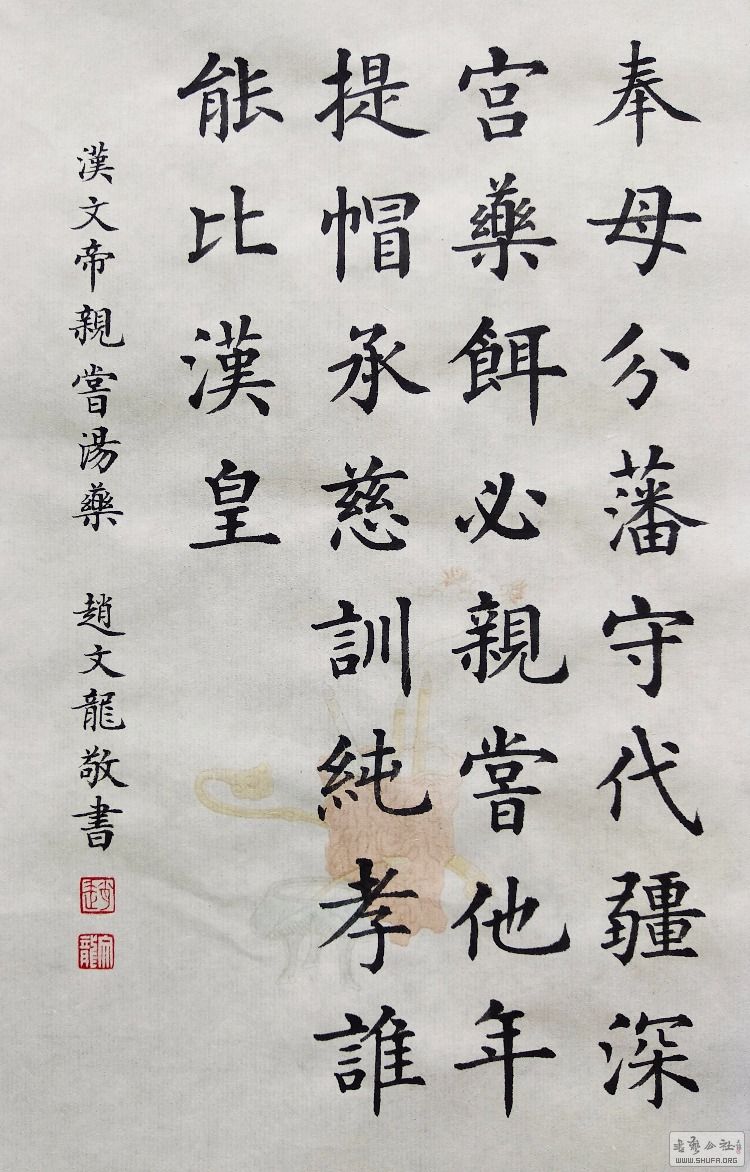 奉母分藩守代疆深
宫藥餌必親嘗他年
提帽承慈訓純孝誰
能比漢皇
漢文帝親嘗湯藥 趙文龍敬書
WWW.SHUFA.ORG